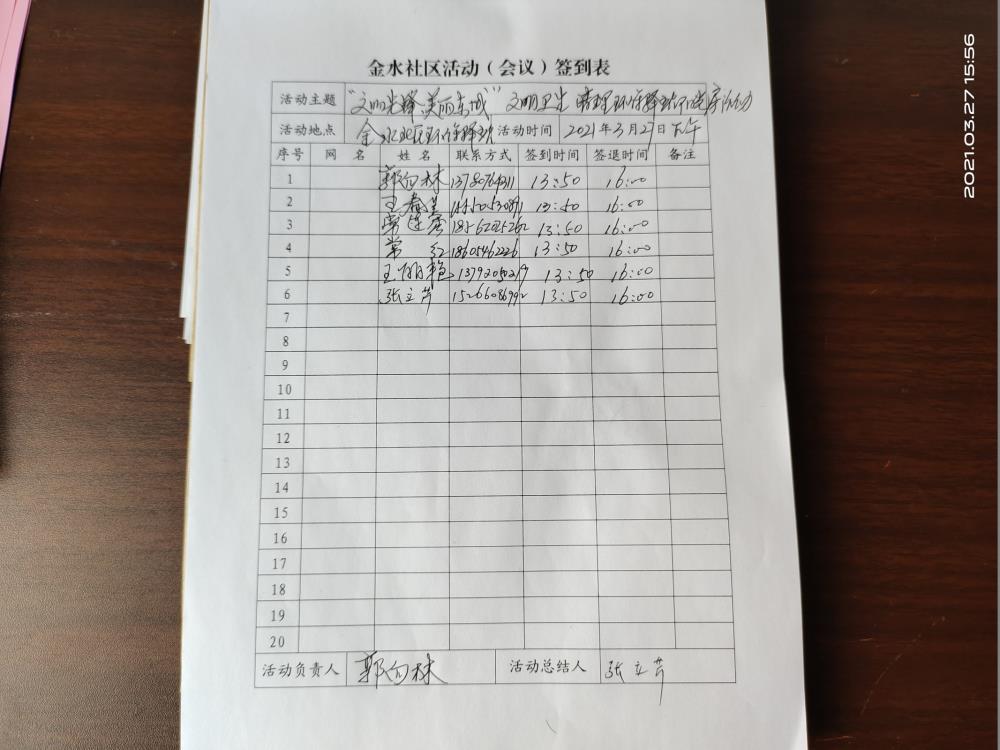 金水社区活动（会议）签到表
活动主题 "文明先锋·美丽东城" 文明卫生 清理环保驿站 活动
活动地点 金水社区环保驿站 活动时间 2021年3月27日下午
序号 网 名 姓 名 联系方式 签到时间 签退时间 备注
1 郭向林 13:50 16:00
2 王春 13:50 16:00
3 常莲 13:50 16:00
4 常 红 18605462226 13:50 16:00
5 王丽艳 13:50 16:00
6 张立芹 13:50 16:00
7
8
9
10
11
12
13
14
15
16
17
18
19
20
活动负责人 郭向林 活动总结人 张立芹
2021.03.27 15:56